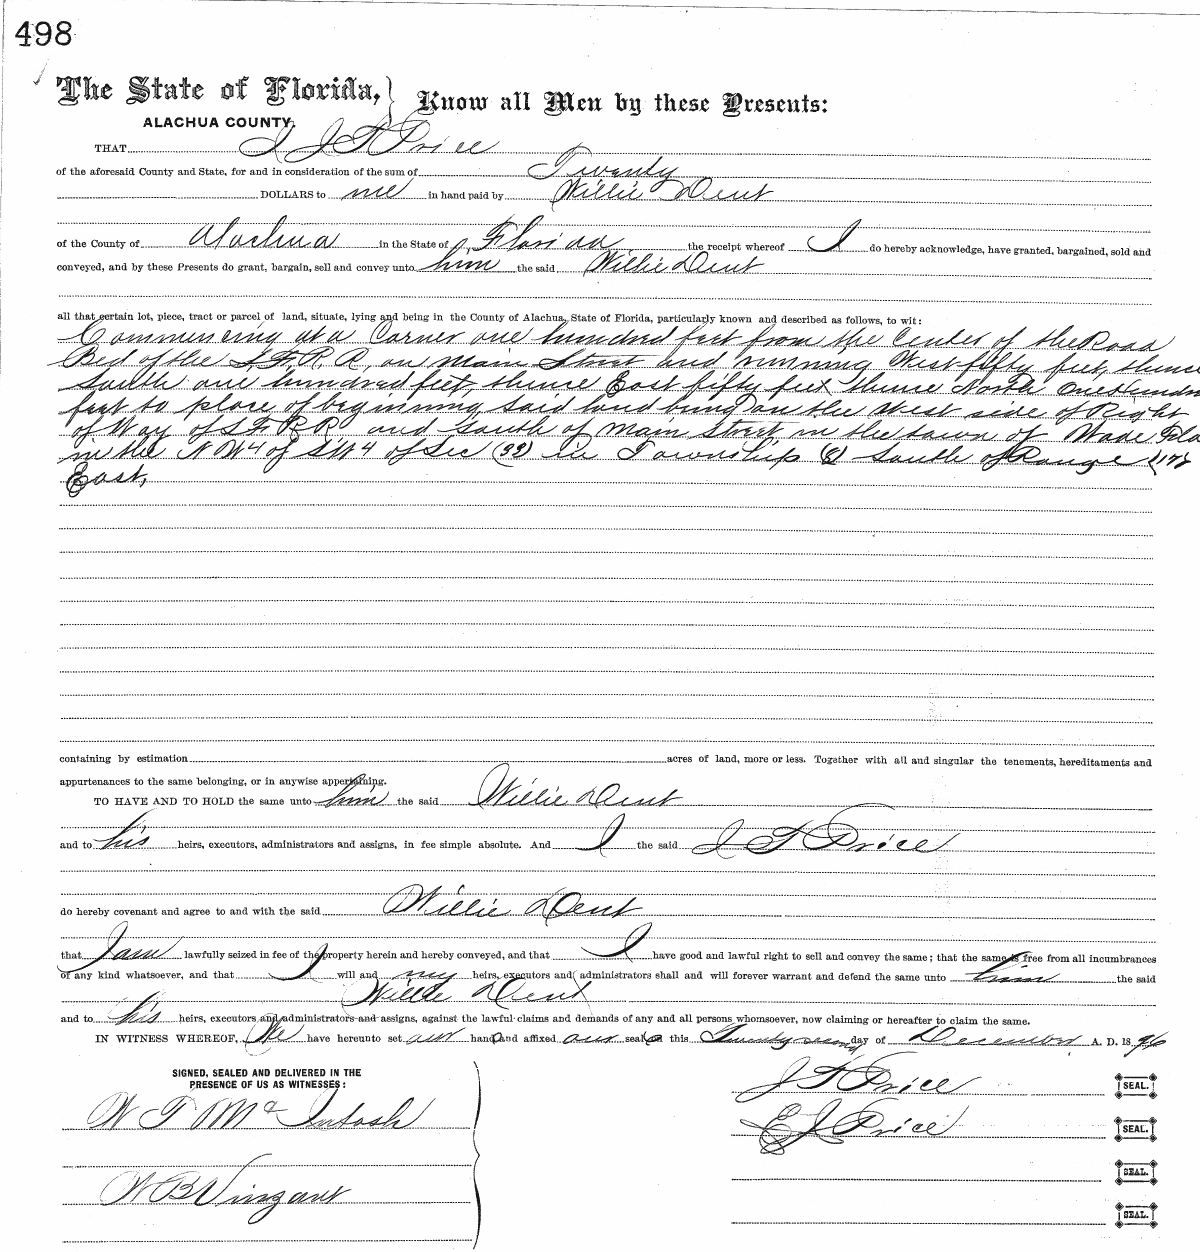 498
The State of Florida, } Know all Men by these Presents:
ALACHUA COUNTY.
THAT I J F Price
of the aforesaid County and State, for and in consideration of the sum of Twenty
DOLLARS to me in hand paid by Willie Dent
of the County of Alachua in the State of Florida, the receipt whereof I do hereby acknowledge, have granted, bargained, sold and
conveyed, and by these Presents do grant, bargain, sell and convey unto him the said Willie Dent
all that certain lot, piece, tract or parcel of land, situate, lying and being in the County of Alachua, State of Florida, particularly known and described as follows, to wit:
Commencing at a Corner one hundred feet from the Center of the Road
Bed of the S.F.R.R, on Main Street and running West fifty feet, thence
South one hundred feet, thence East fifty feet thence North one Hundred
feet to place of beginning, Said land being on the West side of Right
of Way of S F R R and South of Main Street in the town of Wade Fla
in the NW4 of SW4 of Sec (33) in Township (8) South of Range (17)
East,
containing by estimation acres of land, more or less. Together with all and singular the tenements, hereditaments and
appurtenances to the same belonging, or in anywise appertaining.
TO HAVE AND TO HOLD the same unto him the said Willie Dent
and to his heirs, executors, administrators and assigns, in fee simple absolute. And I the said J F Price
do hereby covenant and agree to and with the said Willie Dent
that I am lawfully seized in fee of the property herein and hereby conveyed, and that I have good and lawful right to sell and convey the same; that the same is free from all incumbrances
of any kind whatsoever, and that I will and my heirs, executors and administrators shall and will forever warrant and defend the same unto him the said
Willie Dent
and to his heirs, executors and administrators and assigns, against the lawful claims and demands of any and all persons whomsoever, now claiming or hereafter to claim the same.
IN WITNESS WHEREOF, We have hereunto set our hand and affixed our seal this Twenty second day of December A. D. 1896
SIGNED, SEALED AND DELIVERED IN THE
PRESENCE OF US AS WITNESSES:
J F Price SEAL.
W F McIntosh
E J Price SEAL.
SEAL.
W B Vinzant
SEAL.